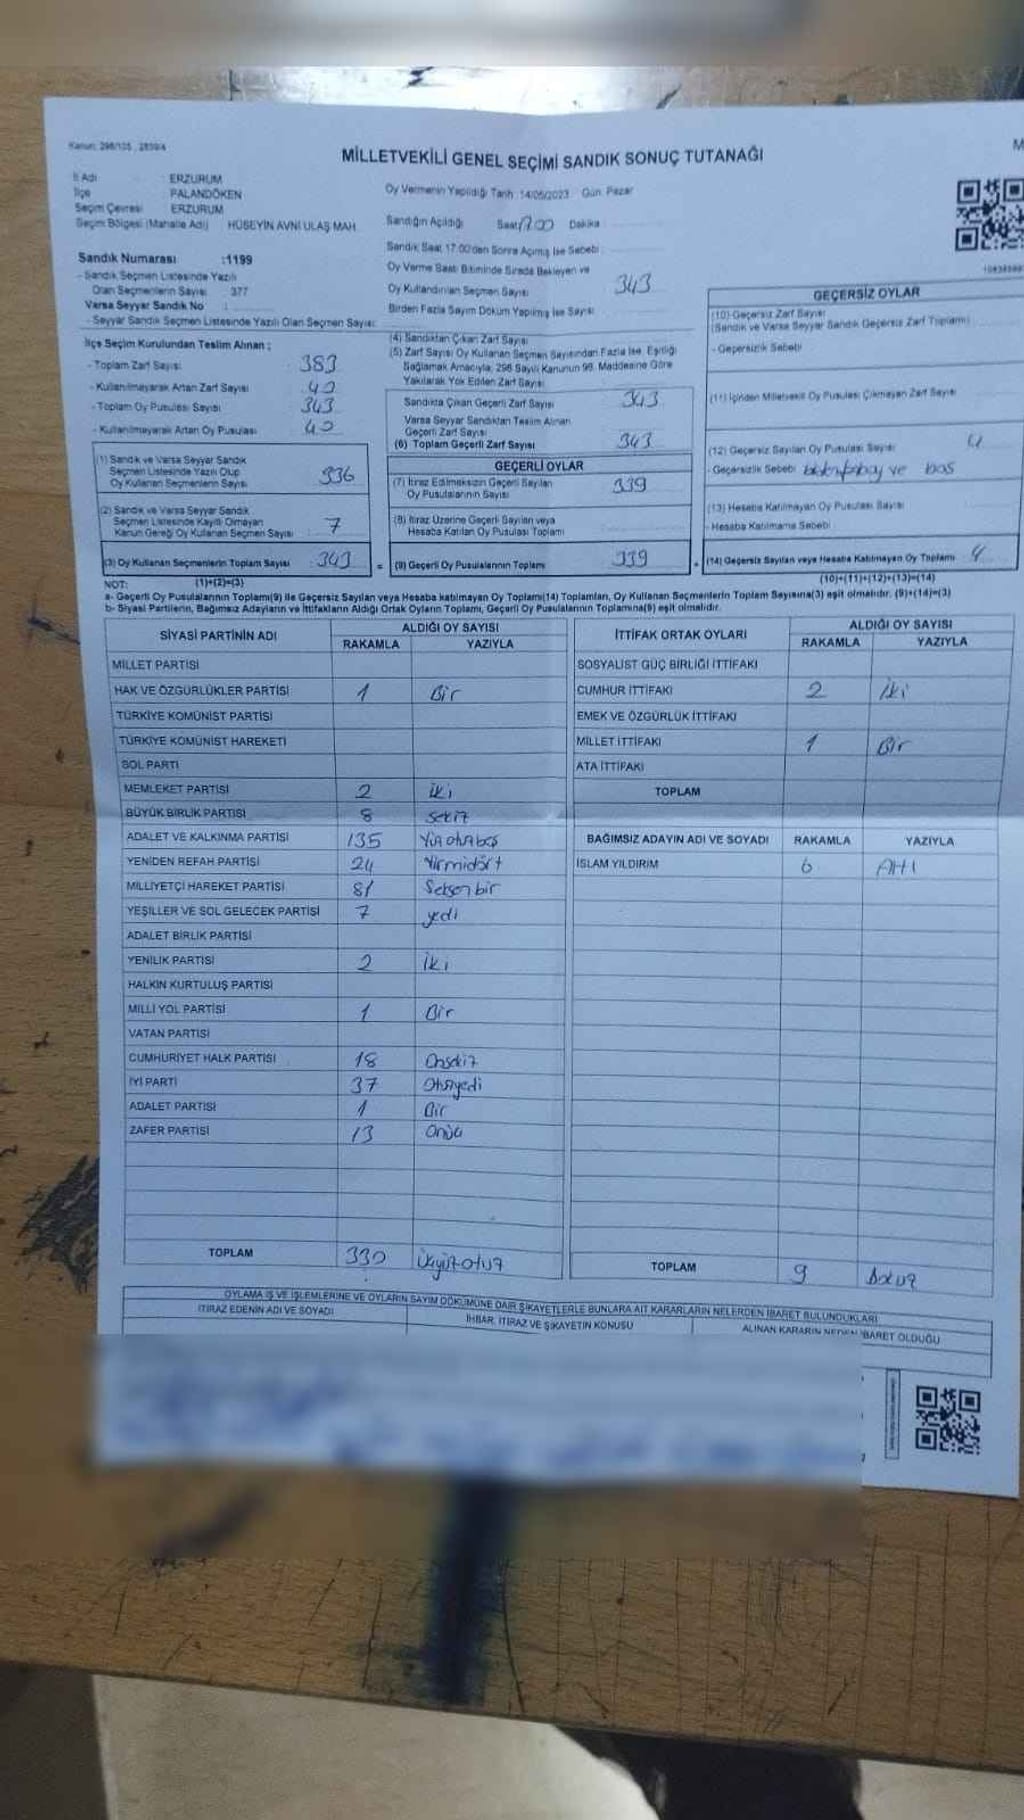 Kanun: 298/105, 2839/4
MİLLETVEKİLİ GENEL SEÇİMİ SANDIK SONUÇ TUTANAĞI
İl Adı : ERZURUM
İlçe PALANDÖKEN
Seçim Çevresi ERZURUM
Seçim Bölgesi (Mahalle Adı) HÜSEYİN AVNİ ULAŞ MAH.
Oy Vermenin Yapıldığı Tarih :14/05/2023 Gün: Pazar
Sandığın Açıldığı Saat 17.00 Dakika :
Sandık Saat 17.00'den Sonra Açılmış İse Sebebi :
Oy Verme Saati Bitiminde Sırada Bekleyen ve
Oy Kullandırılan Seçmen Sayısı 343
Birden Fazla Sayım Döküm Yapılmış İse Sayısı
Sandık Numarası :1199
- Sandık Seçmen Listesinde Yazılı
Olan Seçmenlerin Sayısı : 377
Varsa Seyyar Sandık No :
- Seyyar Sandık Seçmen Listesinde Yazılı Olan Seçmen Sayısı:
İlçe Seçim Kurulundan Teslim Alınan ;
- Toplam Zarf Sayısı : 383
- Kullanılmayarak Artan Zarf Sayısı 40
- Toplam Oy Pusulası Sayısı 343
- Kullanılmayarak Artan Oy Pusulası 40
(1) Sandık ve Varsa Seyyar Sandık
Seçmen Listesinde Yazılı Olup
Oy Kullanan Seçmenlerin Sayısı 336
(2) Sandık ve Varsa Seyyar Sandık
Seçmen Listesinde Kayıtlı Olmayan
Kanun Gereği Oy Kullanan Seçmen Sayısı 7
(3) Oy Kullanan Seçmenlerin Toplam Sayısı : 343
(4) Sandıktan Çıkan Zarf Sayısı
(5) Zarf Sayısı Oy Kullanan Seçmen Sayısından Fazla İse, Eşitliği
Sağlamak Amacıyla; 298 Sayılı Kanunun 98. Maddesine Göre
Yakılarak Yok Edilen Zarf Sayısı
Sandıkta Çıkan Geçerli Zarf Sayısı 343
Varsa Seyyar Sandıktan Teslim Alınan
Geçerli Zarf Sayısı
(6) Toplam Geçerli Zarf Sayısı 343
GEÇERLİ OYLAR
(7) İtiraz Edilmeksizin Geçerli Sayılan
Oy Pusulalarının Sayısı 339
(8) İtiraz Üzerine Geçerli Sayılan veya
Hesaba Katılan Oy Pusulası Toplamı
= (9) Geçerli Oy Pusulalarının Toplamı 339
GEÇERSİZ OYLAR
(10) Geçersiz Zarf Sayısı
(Sandık ve Varsa Seyyar Sandık Geçersiz Zarf Toplamı)
- Geçersizlik Sebebi
(11) İçinden Milletvekili Oy Pusulası Çıkmayan Zarf Sayısı
(12) Geçersiz Sayılan Oy Pusulası Sayısı 4
- Geçersizlik Sebebi ve boş
(13) Hesaba Katılmayan Oy Pusulası Sayısı
- Hesaba Katılmama Sebebi
(14) Geçersiz Sayılan veya Hesaba Katılmayan Oy Toplamı 4
NOT: (1)+(2)=(3) (10)+(11)+(12)+(13)=(14)
a- Geçerli Oy Pusulalarının Toplamı(9) ile Geçersiz Sayılan veya Hesaba katılmayan Oy Toplamı(14) Toplamları, Oy Kullanan Seçmenlerin Toplam Sayısına(3) eşit olmalıdır. (9)+(14)=(3)
b- Siyasi Partilerin, Bağımsız Adayların ve İttifakların Aldığı Ortak Oyların Toplamı, Geçerli Oy Pusulalarının Toplamına(9) eşit olmalıdır.
SİYASİ PARTİNİN ADI ALDIĞI OY SAYISI
RAKAMLA YAZIYLA
MİLLET PARTİSİ
HAK VE ÖZGÜRLÜKLER PARTİSİ 1 Bir
TÜRKİYE KOMÜNİST PARTİSİ
TÜRKİYE KOMÜNİST HAREKETİ
SOL PARTİ
MEMLEKET PARTİSİ 2 iki
BÜYÜK BİRLİK PARTİSİ 8 sekiz
ADALET VE KALKINMA PARTİSİ 135 Yüzotuzbeş
YENİDEN REFAH PARTİSİ 24 Yirmidört
MİLLİYETÇİ HAREKET PARTİSİ 81 Seksenbir
YEŞİLLER VE SOL GELECEK PARTİSİ 7 yedi
ADALET BİRLİK PARTİSİ
YENİLİK PARTİSİ 2 İki
HALKIN KURTULUŞ PARTİSİ
MİLLİ YOL PARTİSİ 1 Bir
VATAN PARTİSİ
CUMHURİYET HALK PARTİSİ 18 Onsekiz
İYİ PARTİ 37 Otuzyedi
ADALET PARTİSİ 1 Bir
ZAFER PARTİSİ 13 Onüç
TOPLAM 330 Üçyüzotuz
İTTİFAK ORTAK OYLARI ALDIĞI OY SAYISI
RAKAMLA YAZIYLA
SOSYALİST GÜÇ BİRLİĞİ İTTİFAKI
CUMHUR İTTİFAKI 2 İki
EMEK VE ÖZGÜRLÜK İTTİFAKI
MİLLET İTTİFAKI 1 Bir
ATA İTTİFAKI
TOPLAM
BAĞIMSIZ ADAYIN ADI VE SOYADI RAKAMLA YAZIYLA
İSLAM YILDIRIM 6 Altı
TOPLAM 9 Dokuz
OYLAMA İŞ VE İŞLEMLERİNE VE OYLARIN SAYIM DÖKÜMÜNE DAİR ŞİKAYETLERLE BUNLARA AİT KARARLARIN NELERDEN İBARET BULUNDUKLARI
İTİRAZ EDENİN ADI VE SOYADI İHBAR, İTİRAZ VE ŞİKAYETİN KONUSU ALINAN KARARIN NEDEN İBARET OLDUĞU